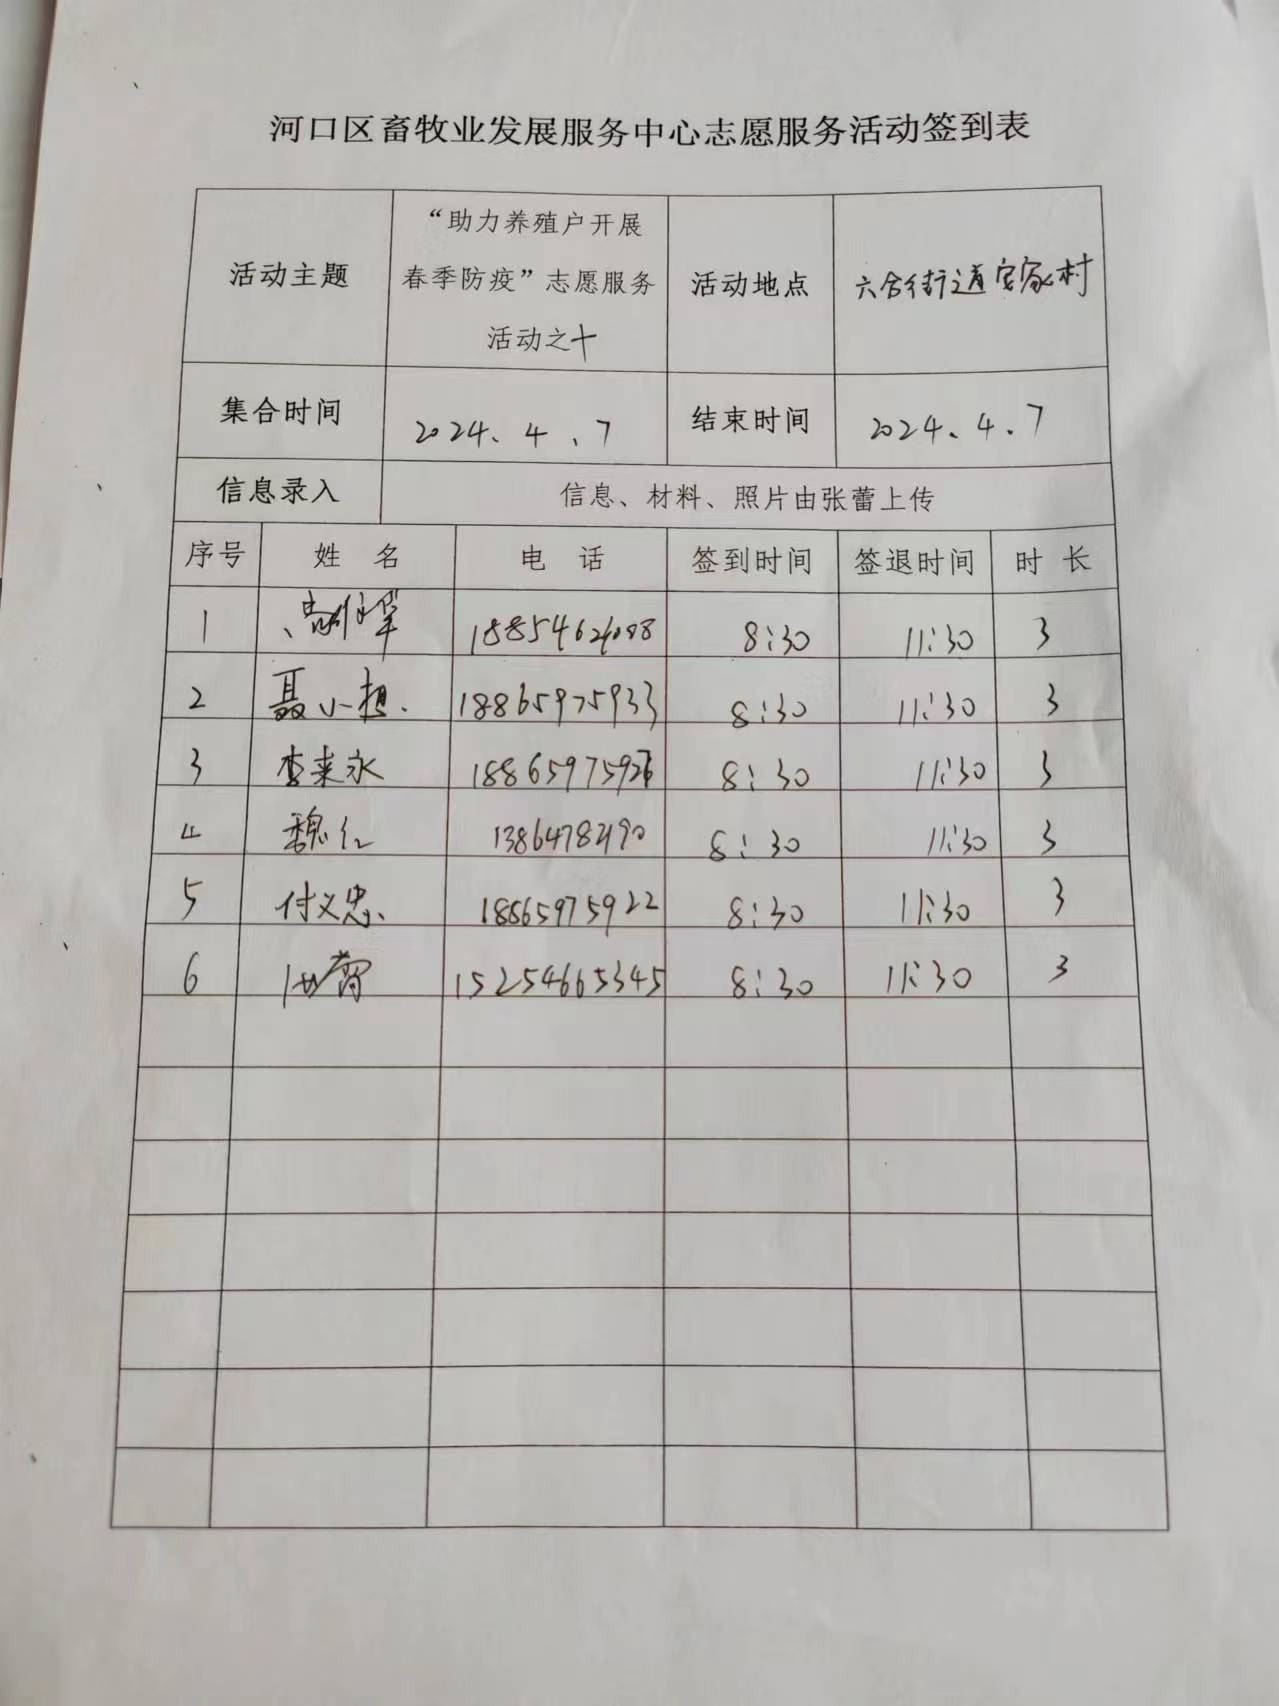 河口区畜牧业发展服务中心志愿服务活动签到表
活动主题
“助力养殖户开展
春季防疫”志愿服务
活动之十
活动地点
六合街道安家村
集合时间
2024.4.7
结束时间
2024.4.7
信息录入
信息、材料、照片由张蕾上传
序号 姓 名 电 话 签到时间 签退时间 时 长
1 8:30 11:30 3
2 聂小想 18865975933 8:30 11:30 3
3 李来永 8:30 11:30 3
4 魏红 8:30 11:30 3
5 付义忠 18865975922 8:30 11:30 3
6 15254665345 8:30 11:30 3